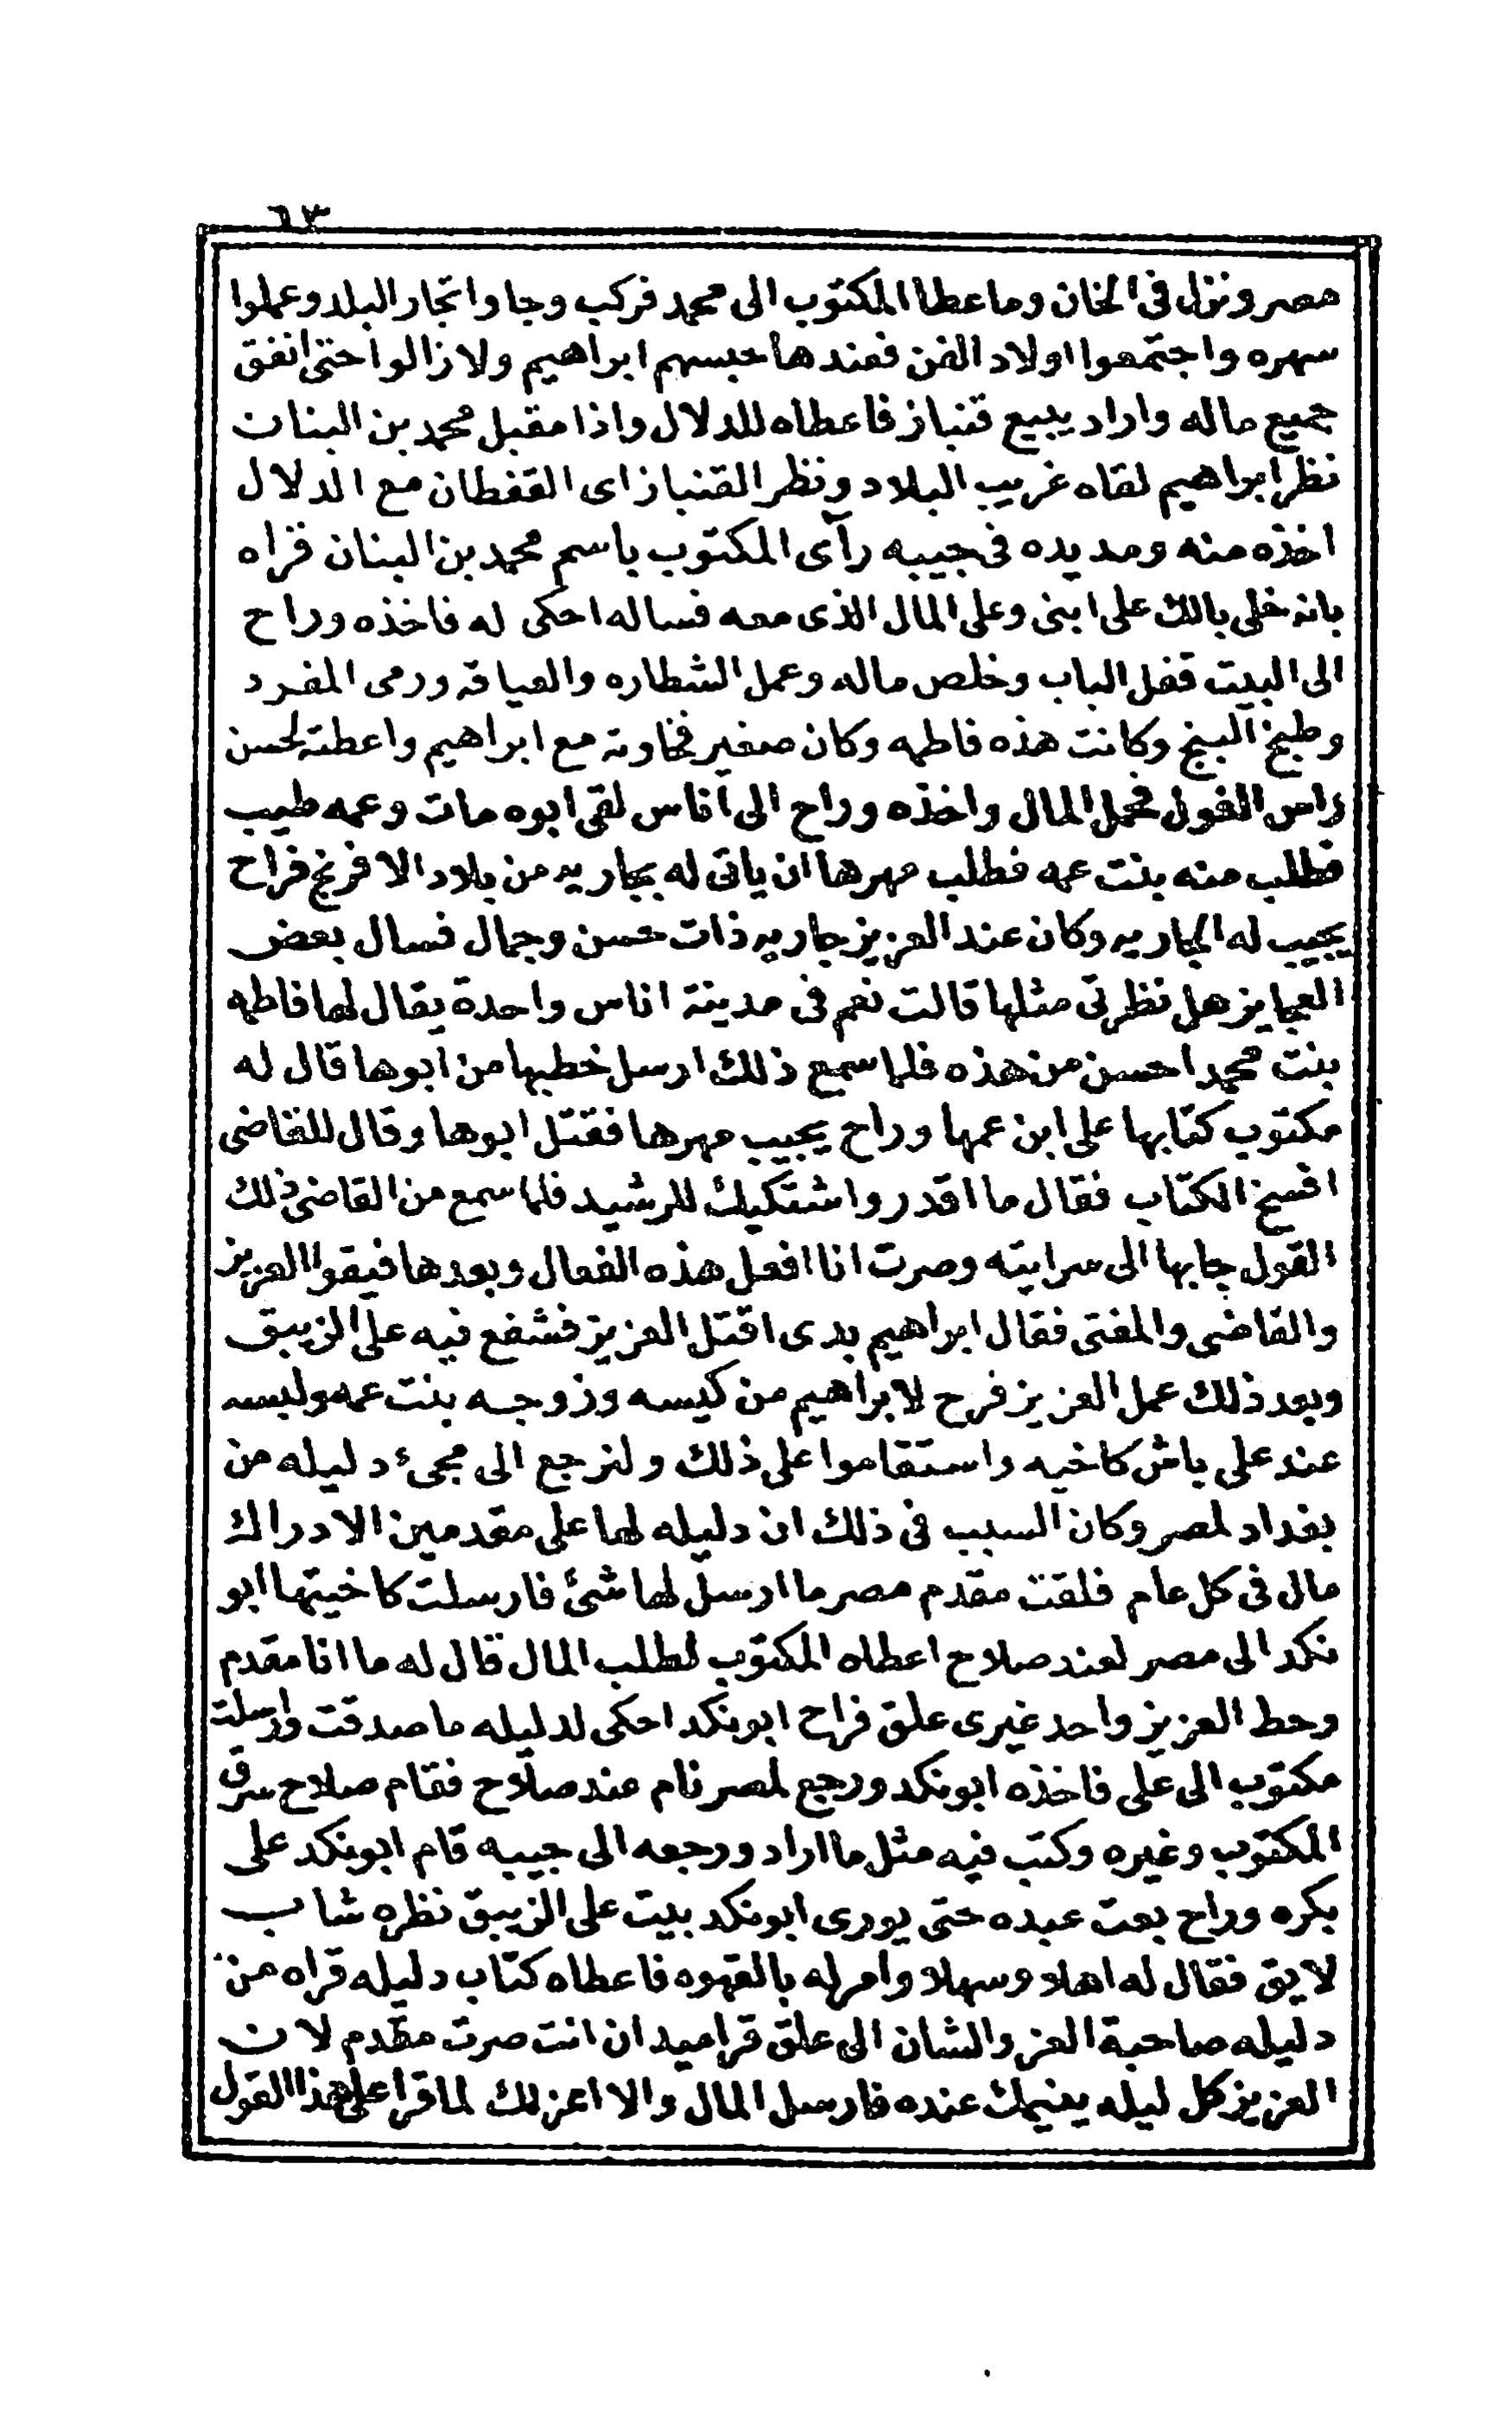 ٦٣
مصر ونزل فى الخان وما عطا المكتوب الى محمد فركب وجاوا تجار البلد وعملوا
سهره واجتمعوا اولاد الفن فعندها حبسهم ابراهيم ولا زالوا حتى انفق
جميع ماله واراد يبيع قنباز فاعطاه للدلال واذا مقبل محمد بن البنان
نظر ابراهيم لقاه غريب البلاد ونظر القنباز اى القفطان مع الدلال
اخذه منه ومد يده فى جيبه رآى المكتوب باسم محمد بن البنان قراه
بانه خلى بالك على ابنى وعلى المال الذى معه فساله احكى له فاخذه وراح
الى البيت قفل الباب وخلص ماله وعمل الشطاره والعياقه ورمى المفرد
وطبخ البنج وكانت هذه فاطمه وكان صغير فخاوته مع ابراهيم واعطته لحسن
راس الغول فحمل المال واخذه وراح الى آناس لقى ابوه مات وعمه طيب
فطلب منه بنت عمه فطلب مهرها ان ياتى له بجاريه من بلاد الافرنج فراح
يجيب له الجاريه وكان عند العزيز جاريه ذات حسن وجمال فسال بعض
العجايز هل نظرتى مثلها قالت نعم فى مدينة اناس واحدة يقال لها فاطمه
بنت محمد احسن من هذه فلما سمع ذلك ارسل خطبها من ابوها قال له
مكتوب كتابها على ابن عمها وراح يجيب مهرها فقتل ابوها وقال للقاضى
افسخ الكتاب فقال ما اقدر واشتكيك للرشيد فلما سمع من القاضى ذلك
القول جابها الى سرايته وصرت انا افعل هذه الفعال وبعدها فيقوا العزيز
والقاضى والمفتى فقال ابراهيم بدى اقتل العزيز فشفع فيه على الزيبق
وبعد ذلك عمل العزيز فرح لابراهيم من كيسه وزوجه بنت عمه ولبسه
عند على باش كاخيه واستقاموا على ذلك ولنرجع الى مجىء دليله من
بغداد لمصر وكان السبب فى ذلك ان دليله لها على مقدمين الادراك
مال فى كل عام فلقت مقدم مصر ما ارسل لها شئ فارسلت كاخيتها ابو
نكد الى مصر لعند صلاح اعطاه المكتوب لطلب المال قال له ما انا مقدم
وحط العزيز واحد غيرى علق فراح ابو نكد احكى لدليله ما صدقت وارسلت
مكتوب الى على فاخذه ابو نكد ورجع لمصر نام عند صلاح فقام صلاح سرق
المكتوب وغيره وكتب فيه مثل ما اراد ورجعه الى جيبه قام ابو نكد على
بكره وراح بعت عبده حتى يورى ابو نكد بيت على الزيبق نظره شاب
لايق فقال له اهلا وسهلا وامر له بالقهوه فاعطاه كتاب دليله قراه من
دليله صاحبة العز والشان الى علق قراميدان انت صرت مقدم لان
العزيز كل ليله ينيمك عنده فارسل المال والا اعزلك لما قرا على هذا القول